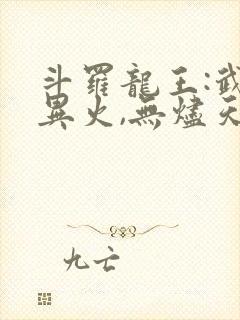 斗羅龍王:武
異火,無燼天
九亡